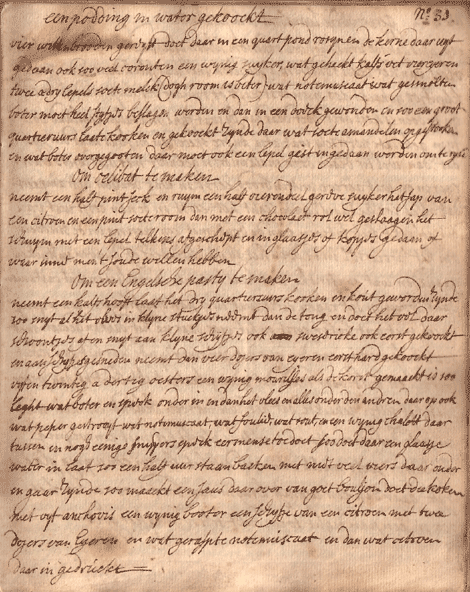 een podding in water gekoockt
No 39
vier wittenbrooden gerdst doet daar in een quart pond rosynen de kerne daar uyt
gedaan ook soo veel corenten een wynig suyker, wat gehackt kalfs vet vier eyeren
twee a dry lepels soete melck (dogh room is beter) wat notemuscaat wat gesmolten
boter moet heel styfjes beslagen worden en dan in een doeck gewonden en soo een groot
quartier uurs laate kooken en gekoockt zynde daar wat soete amandelen op gestooken
en wat boter overgegooten daar moet ook een lepel gist in gedaan worden om te rysen
Om celibat te maken
neemt een half pint seck en ruym een half vierendeel gerdve suyker het sap van
een citroen en een pint soete room dan met een chocolaet rol wel geslaagen het
schuym met een lepel telkens afgeschept en in glaasjes of kopjes gedaan of
waar in men t soude willen hebben
Om een Engelsche pasty te maken
neemt een kalfs hooft laat het dry quartier uurs kooken en kout geworden zynde
soo snyt al het vlees in klyne stuckjes neemt dan de tong en doet het vel daar
schoontjes af en snyt aan klyne schyfjes ook sweesericke ook eerst gekoockt
en aan schyfjes gesneden neemt dan vier dojers van eyeren eerst hard gekoockt
vyf en twintig a dertig oesters een wynig moruljes als de korst gemaackt is soo
leght wat boter en speck onder in en dan het vlees en alles onder den andren daar op ook
wat peper gestrooyt wat notemuscaat, wat foulie, wat sout, en een wynig chalott daar
tussen en nogh eenige snippers speck eer men se toe doet soo doet daar een glaasje
water in laat soo een half uur staan backen met niet veel viers daar onder
en gaar zynde soo maackt een saus daar over van goet bouljon doet die kooken
met vyf anchovis een wynig booter een schyfje van een citroen met twee
dojers van Eyeren en wat geraspte notemuscaat en dan wat citroen
daar in gedruckt